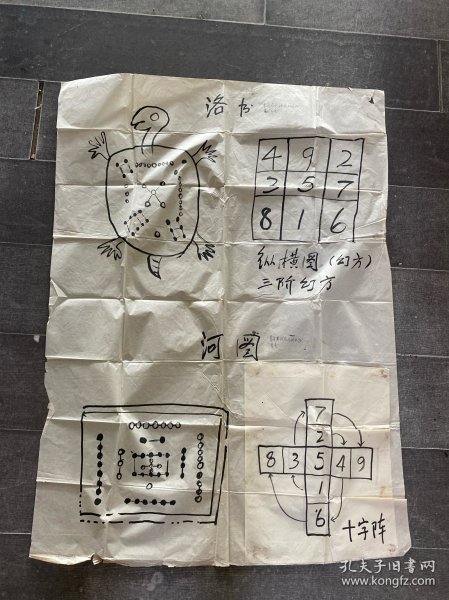 洛书
4 9 2
3 5 7
8 1 6
纵横图（幻方）
三阶幻方
河图
7
2
8 3 5 4 9
1
6
十字阵
孔夫子旧书网
www.kongfz.com